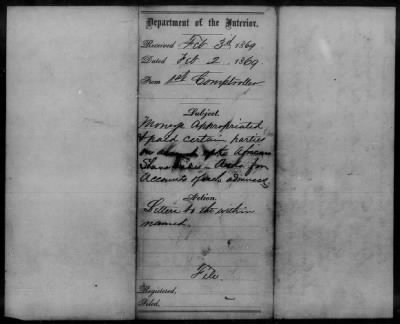 Department of the Interior.
Received Feb 3d, 1869
Dated Feb 2 1869.
From 1st Comptroller
Subject.
Moneys Appropriated
& paid certain parties
on African
Slave Trade Asks for
Accounts of such advances
Action.
Letters to the within
named.
File.
Registered,
Filed.